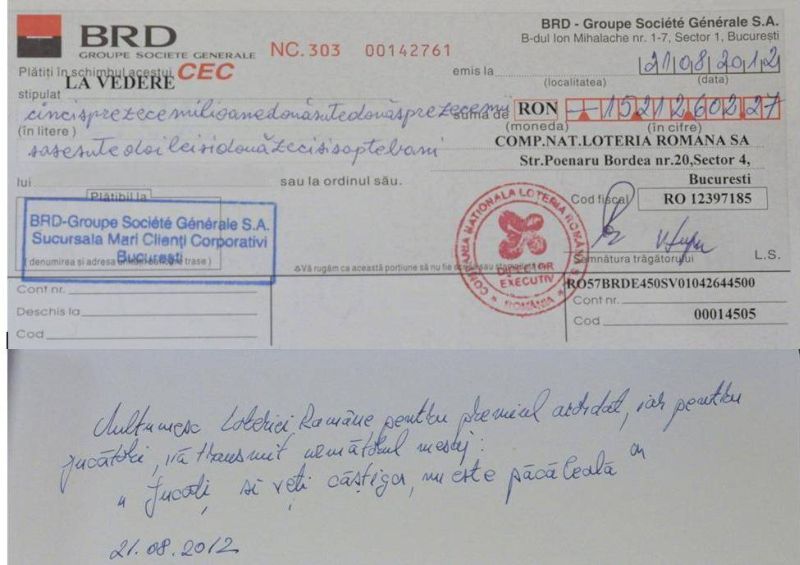 BRD
GROUPE SOCIETE GENERALE
NC.303 00142761
BRD - Groupe Société Générale S.A.
B-dul Ion Mihalache nr. 1-7, Sector 1, București
Plătiți în schimbul acestui CEC
emis la
21 08 2012
(localitatea)
(data)
LA VEDERE
stipulat
cincisprezecemilioanedouăsutedouăsprezecemii
suma de RON 15212602,27
(în litere)
(moneda)
(în cifre)
sasesutedoileisidouăzecisisaptebani
COMP.NAT.LOTERIA ROMANA SA
Str.Poenaru Bordea nr.20,Sector 4,
Bucuresti
lui
sau la ordinul său.
Cod fiscal RO 12397185
Plătibil la
BRD-Groupe Société Générale S.A.
Sucursala Mari Clienți Corporativi
București
(denumirea și adresa trase)
COMPANIA NATIONALA LOTERIA ROMÂNĂ
DIRECTOR
EXECUTIV
ROMÂNIA
Semnătura trăgătorului
L.S.
Vă rugăm ca această porțiune să nu fie sau
Cont nr.
Deschis la
Cod
RO57BRDE450SV01042644500
Cont nr.
Cod 00014505
Multumesc Loteriei Române pentru premiul acordat, iar pentru
jucători, vă transmit următorul mesaj:
„Jucați, si veți câștiga, nu este păcăleală"
21.08.2012